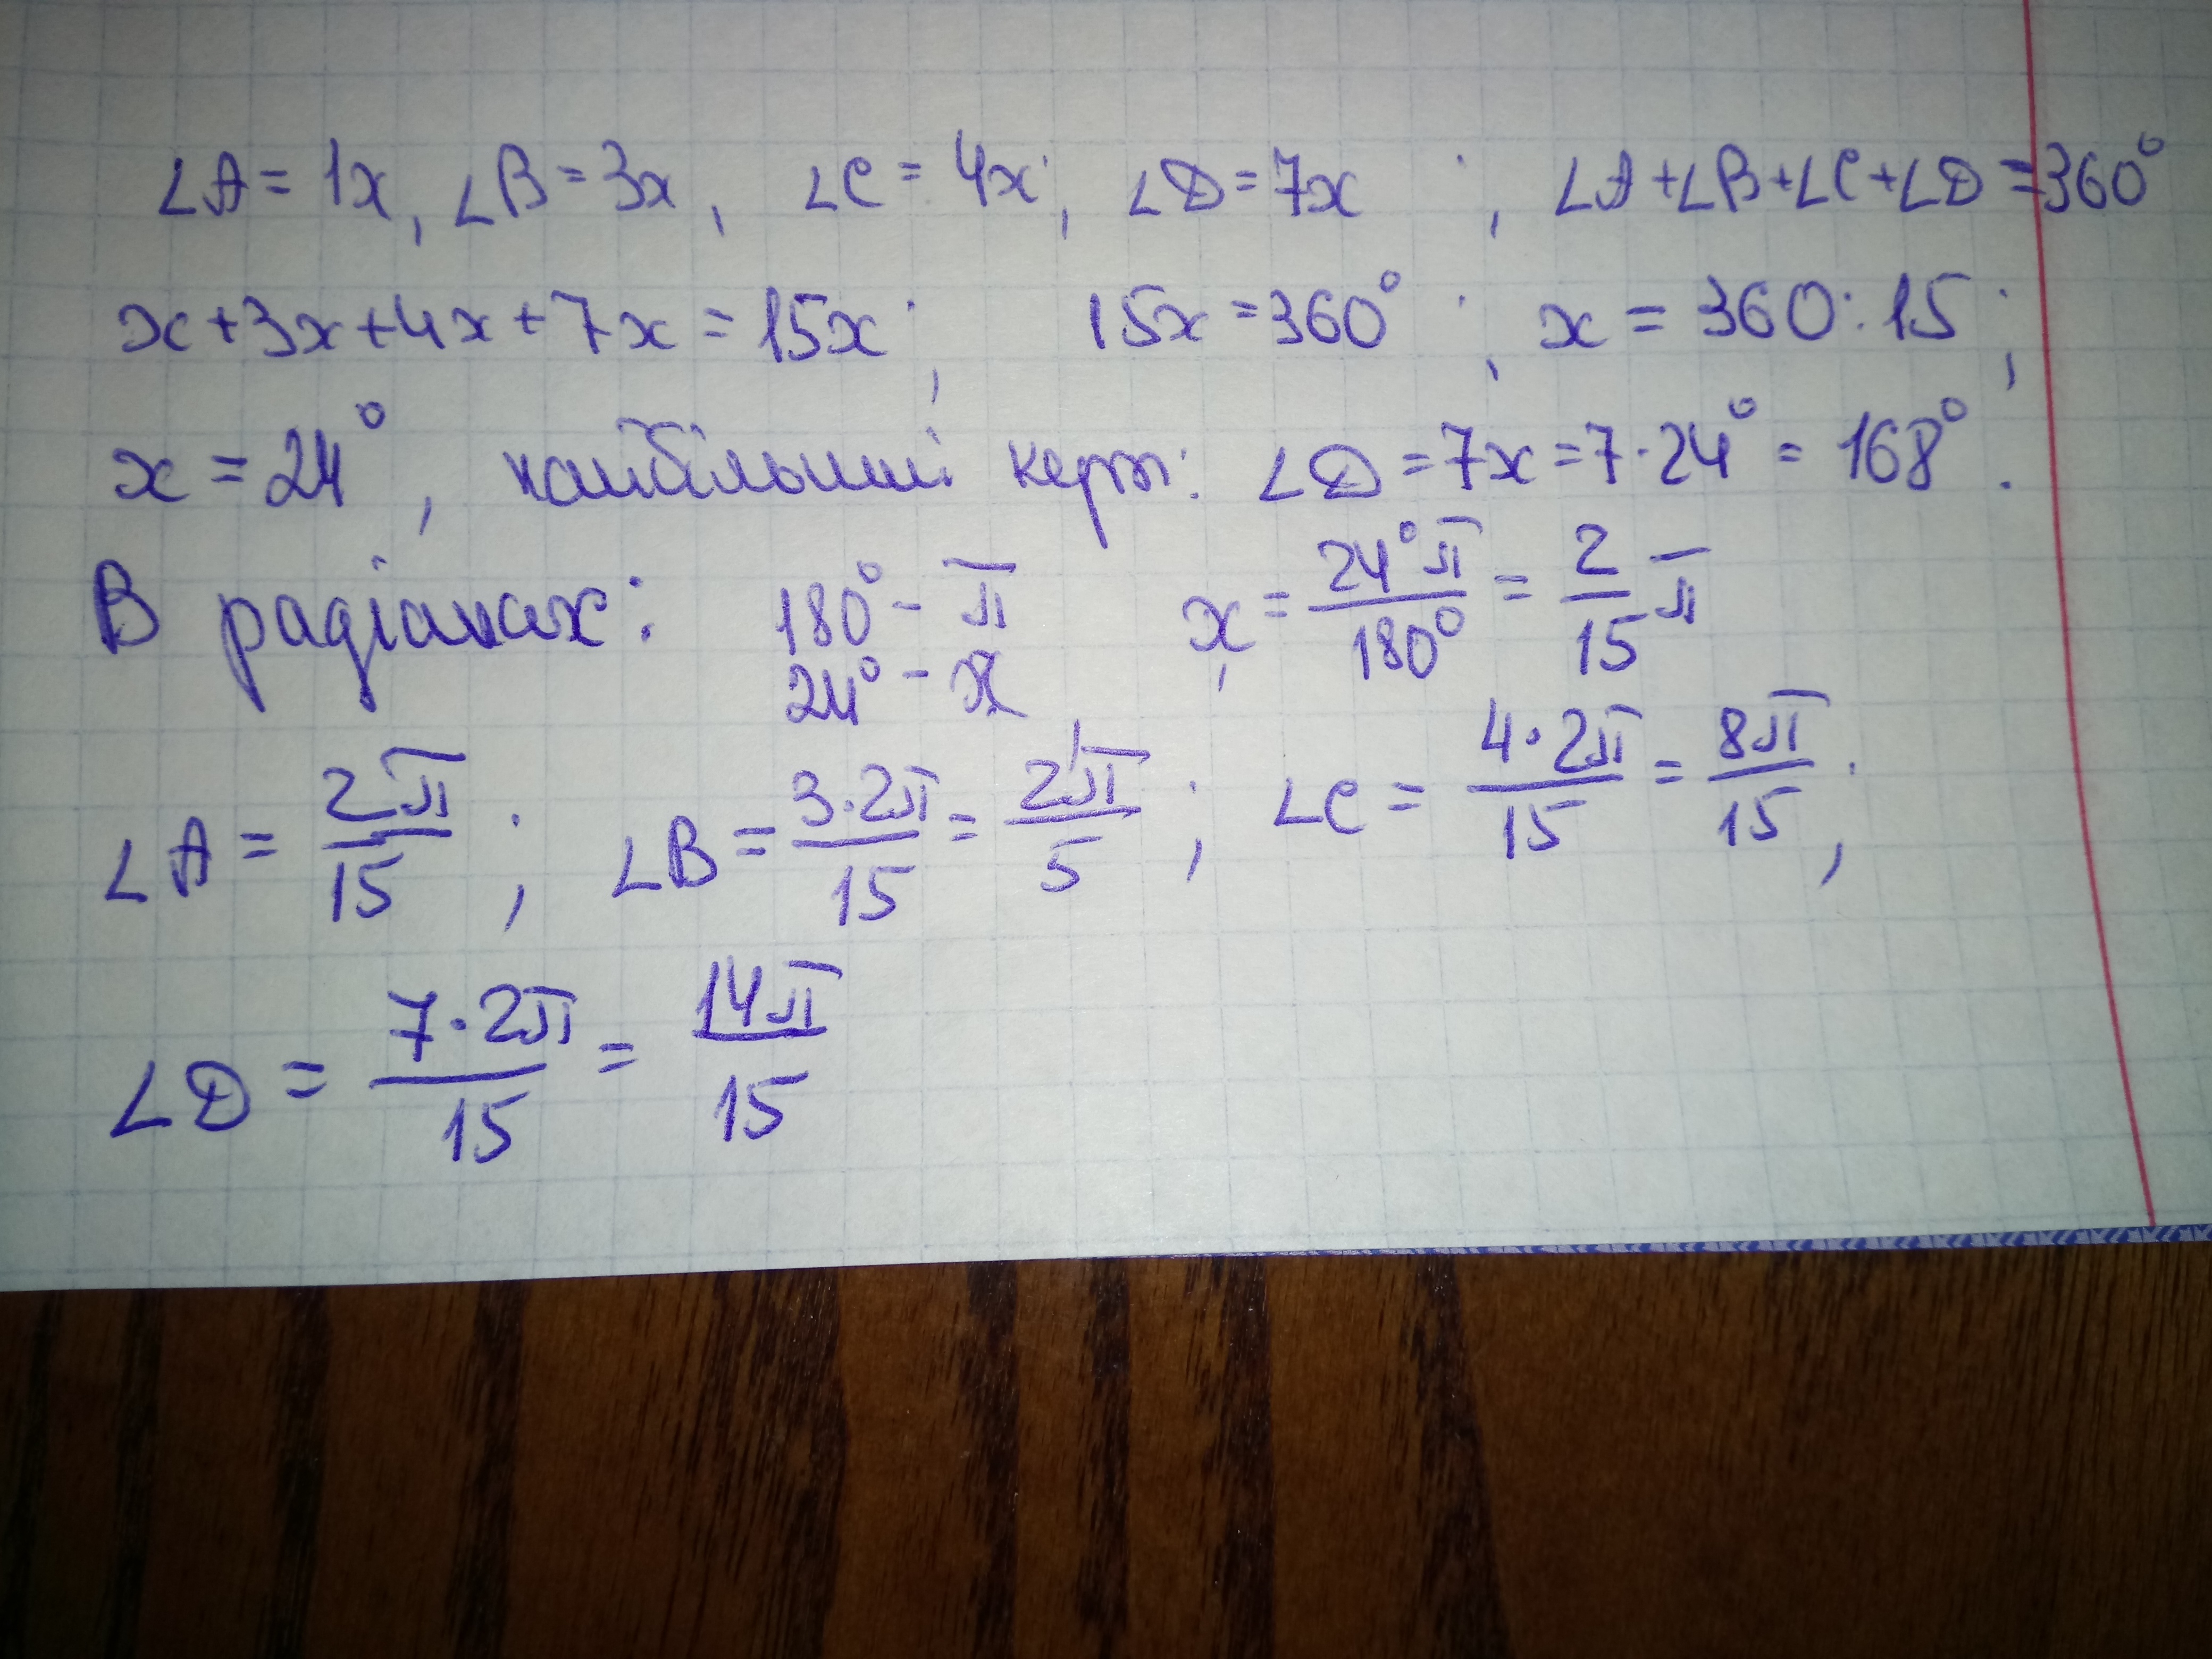 ∠A = 1x, ∠B = 3x, ∠C = 4x; ∠D = 7x ; ∠A + ∠B + ∠C + ∠D = 360°
x + 3x + 4x + 7x = 15x; 15x = 360°; x = 360 : 15;
x = 24°, найбільший кут: ∠D = 7x = 7 · 24° = 168°.
В радіанах: 180° - π x = 24°π/180° = 2/15 π
24° - x
∠A = 2π/15; ∠B = 3·2π/15 = 2π/5; ∠C = 4·2π/15 = 8π/15;
∠D = 7·2π/15 = 14π/15